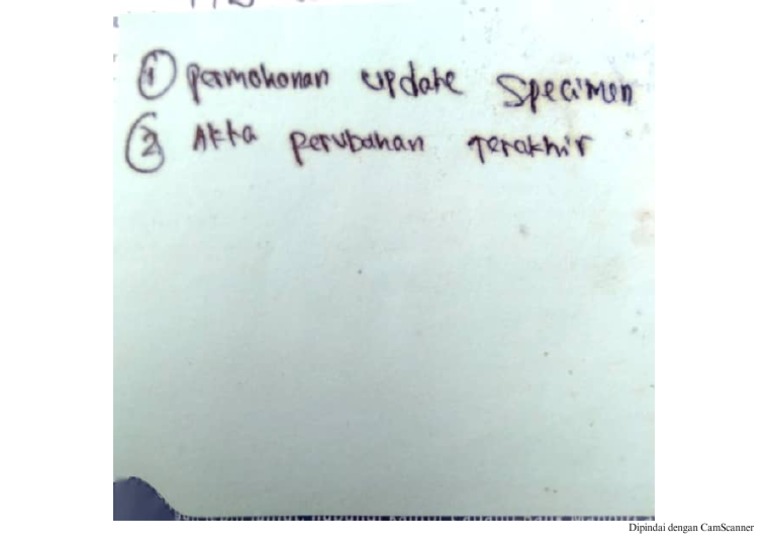 ① Permohonan update Specimen
② Akta perubahan Terakhir
Dipindai dengan CamScanner